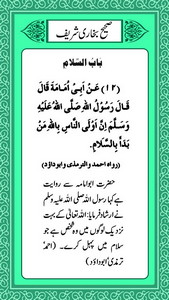 صحیح بخاری شریف
بابُ السّلام
(۱۲) عَنْ أَبِي أُمَامَةَ قَالَ
قَالَ رَسُوْلُ اللهِ صَلَّى اللهُ عَلَيْهِ
وَسَلَّمَ إِنَّ أَوْلَى النَّاسِ بِاللهِ مَنْ
بَدَأَ بِالسَّلَامِ۔
(رواہ احمد والترمذی وابوداؤد)
حضرت ابوامامہ سے روایت
ہے کہا رسول اللہ صلی اللہ علیہ وسلم
نے ارشاد فرمایا: اللہ تعالٰی کے بہت
نزدیک لوگوں میں وہ شخص ہے جو
سلام میں پہل کرے۔ (احمدؒ
ترمذیؒ ابوداؤدؒ)